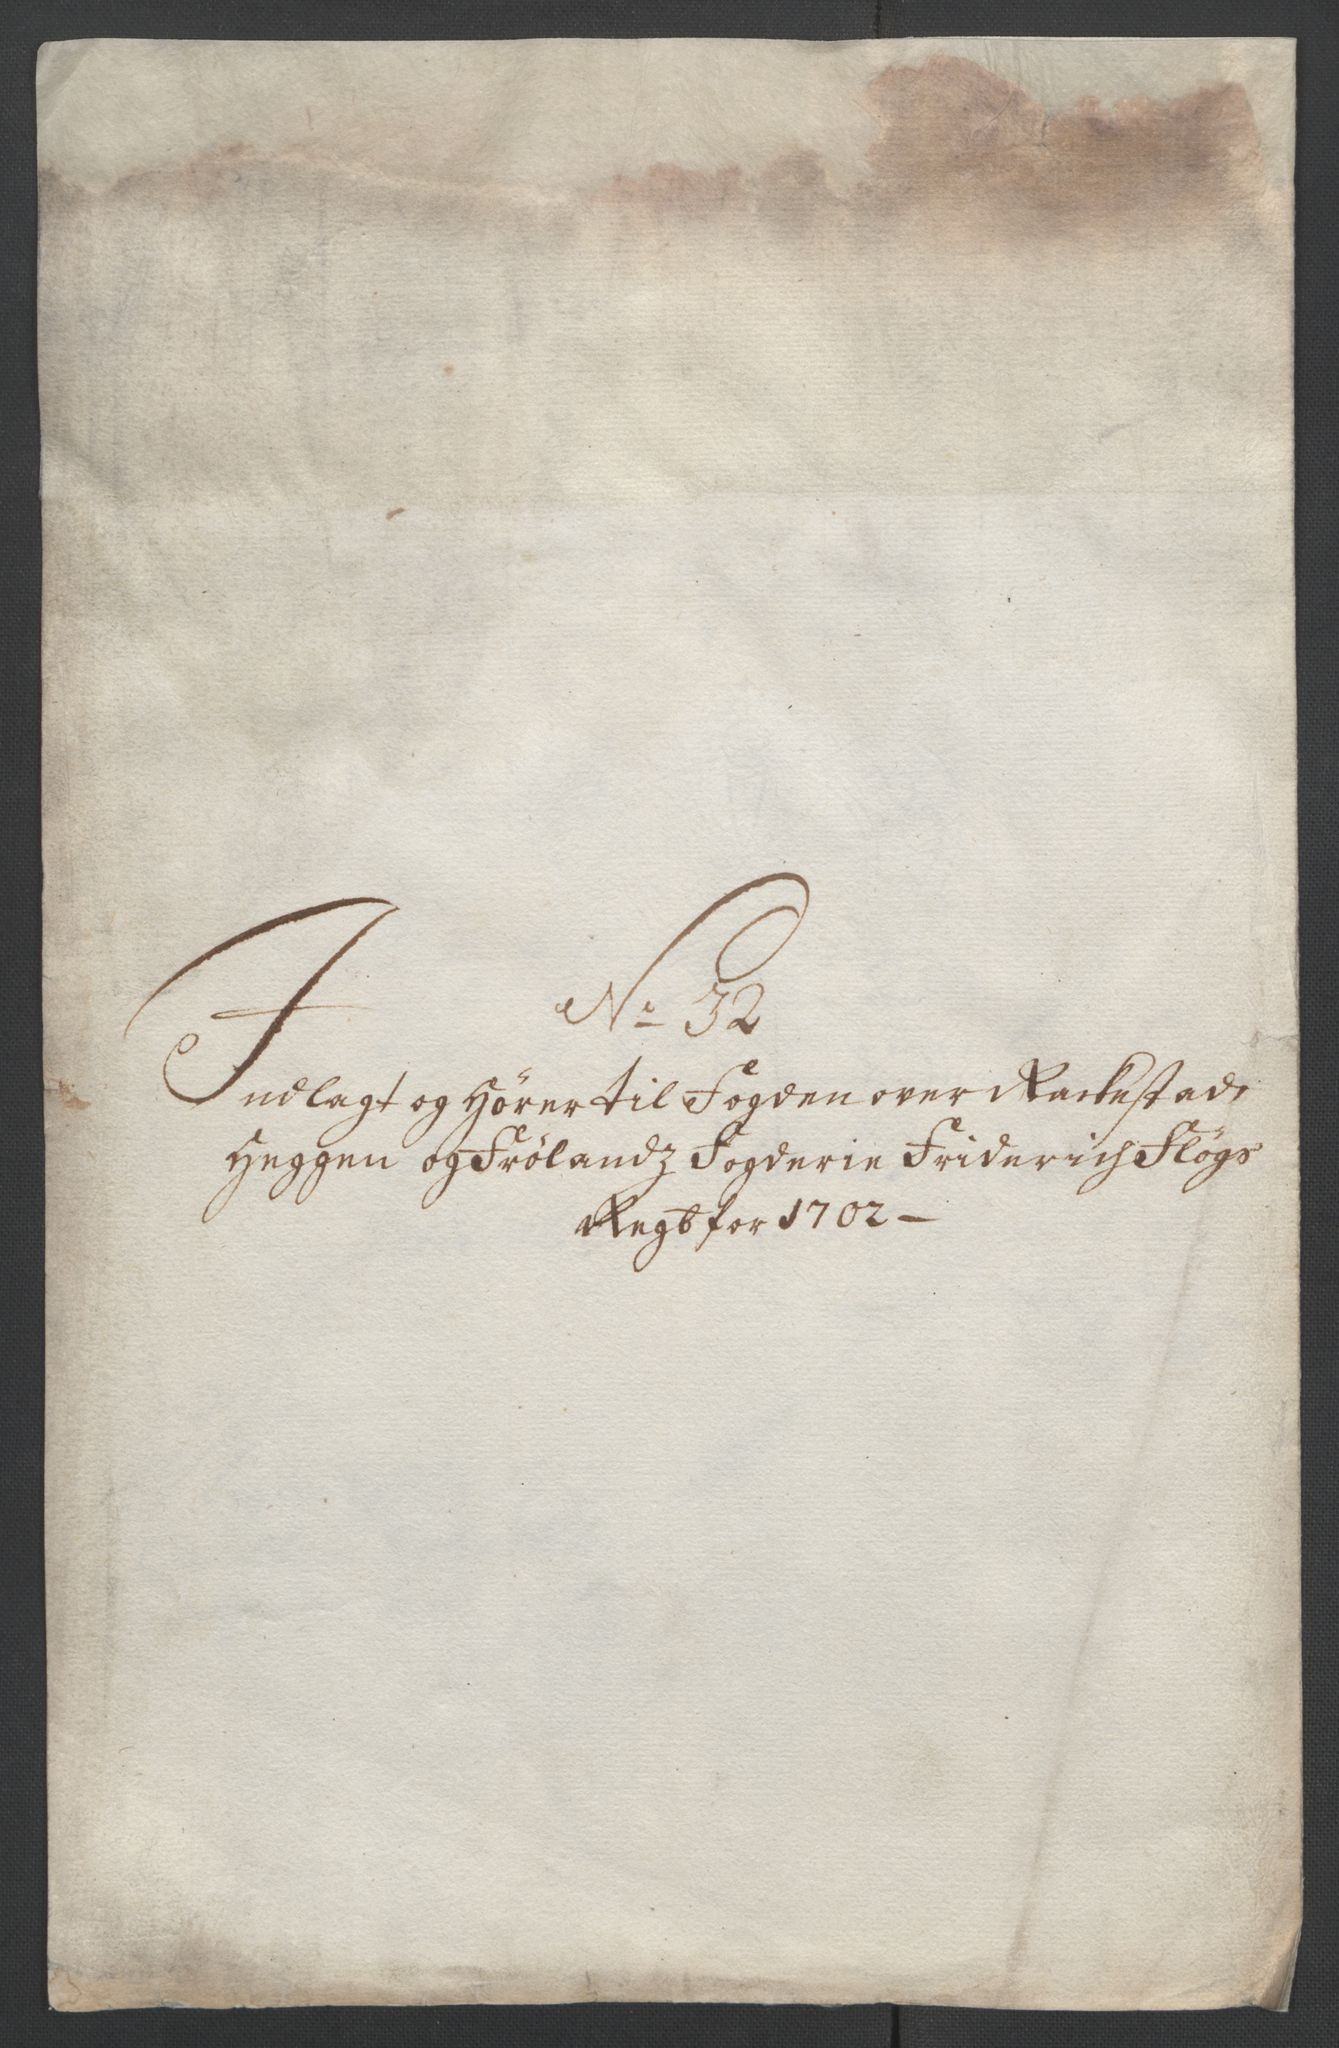 No 32
Indlagt og Hører til Fogden over Rackestad,
Heggen og Frølandz Fogderie Friderich Fløgs
Regsb for 1702 —